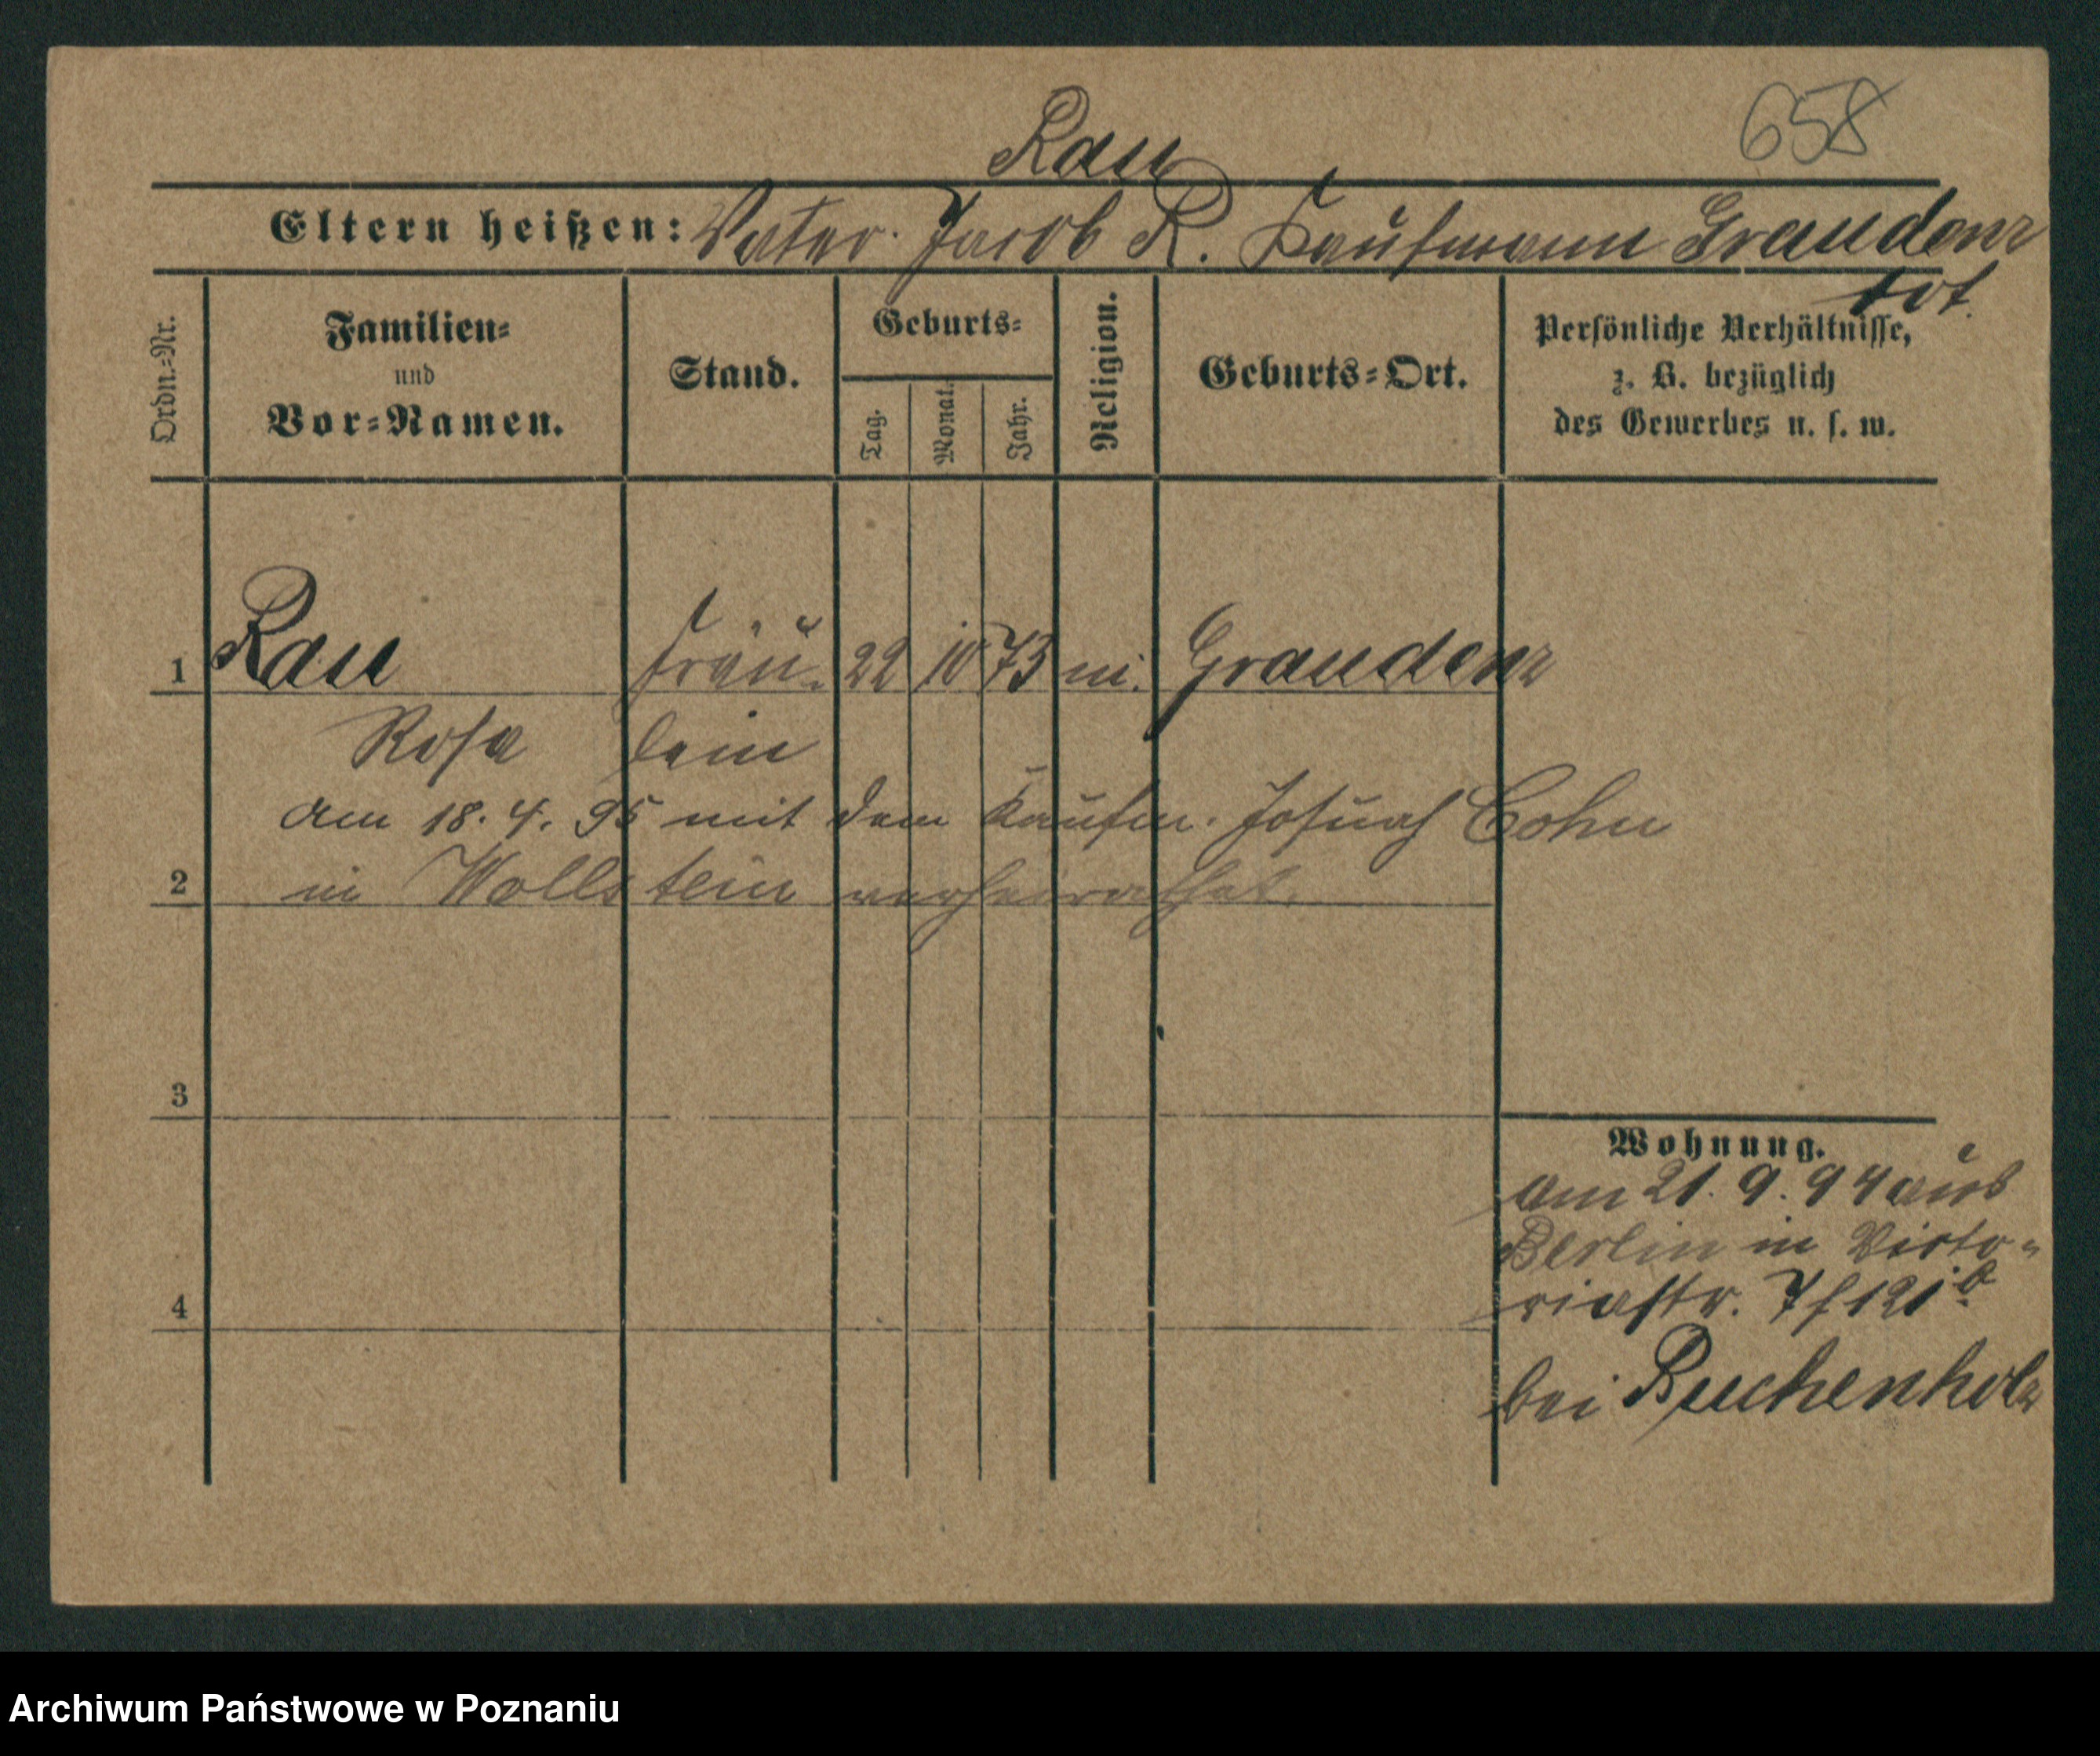 658
Rau
Eltern heißen: Vater Jacob R. Kaufmann Graudenz
tot.
Ordn.-Nr.
Familien-
und
Vor-Namen.
Stand.
Geburts-
Tag.
Monat.
Jahr.
Religion.
Geburts-Ort.
Persönliche Verhältnisse,
z. B. bezüglich
des Gewerbes u. s. w.
1 Rau Fräu- 22 10 73 m. Graudenz
Rosa lein
am 18. 4. 95 mit dem Kaufm. Josuah Cohn
2 in Wollstein verheirathet.
3
4
Wohnung.
am 21. 9. 94 aus
Berlin in Victo-
riastr. 7
bei Buchenholz
Archiwum Państwowe w Poznaniu